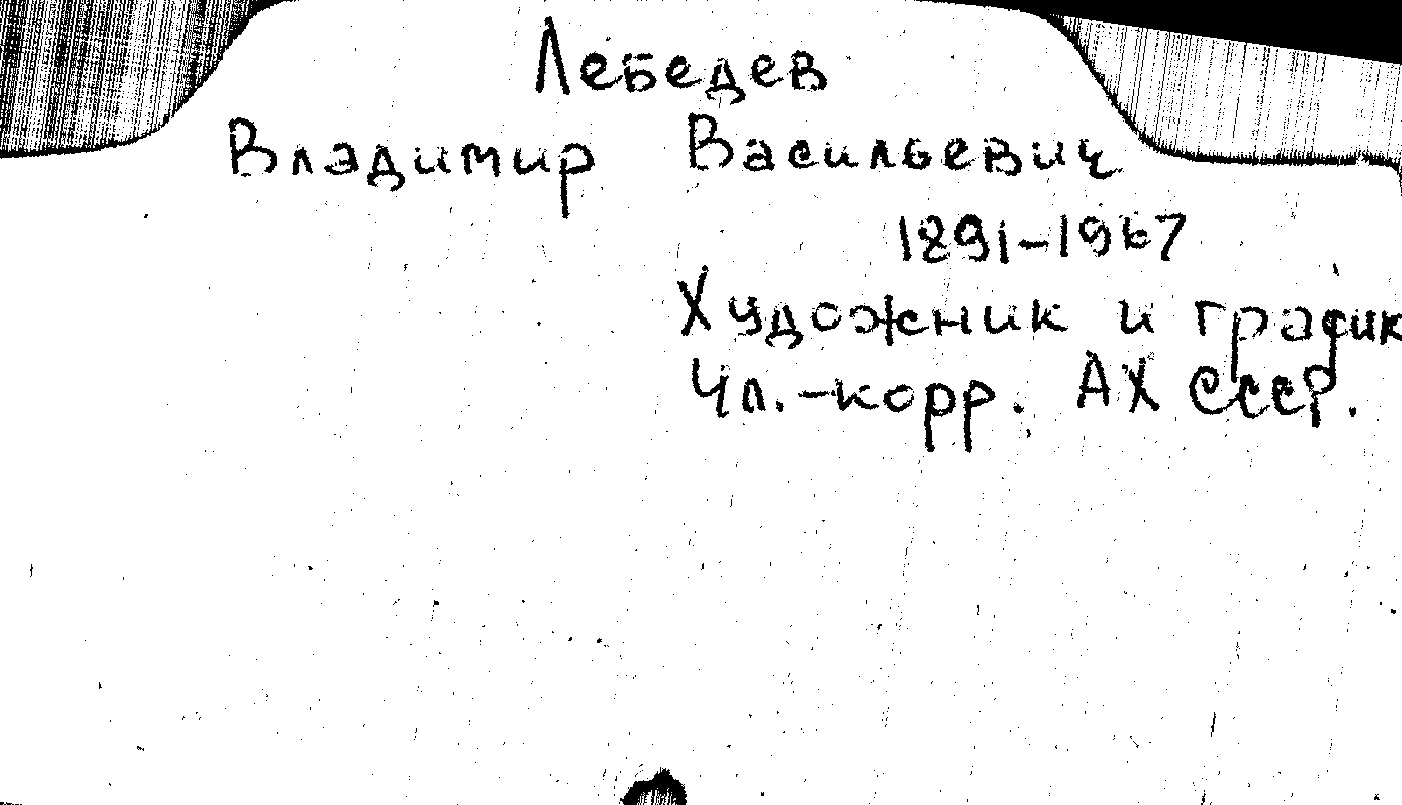 Лебедев
Владимир Васильевич
1891-1967
Художник и график
Чл.-корр. АХ СССР.